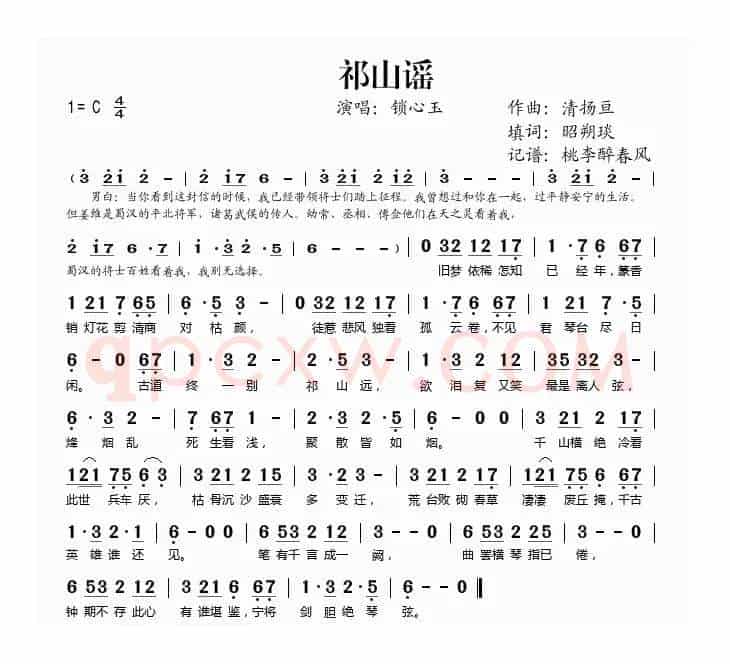 祁山谣
1= C 4/4 演唱：锁心玉 作曲：清扬豆
填词：昭朔琰
记谱：桃李醉春风
( 3 2 1 2 - | 2 1 7 6 - | 3 2 1 2 - | 3 - - - |
男白：当你看到这封信的时候，我已经带领将士们踏上征程。我曾想过和你在一起，过平静安宁的生活。
但姜维是蜀汉的平北将军，诸葛武侯的传人。幼常、丞相、傅佥他们在天之灵看着我，
2 1 7 6 · 5 | 3 · 5 2 - | 1 · 3 2 · 5 | 6 - - ) | 0 32 12 17 | 1 · 7 6 67 |
蜀汉的将士百姓看着我，我别无选择。 旧梦 依稀 怎知 已 经 年，篆香
1 21 7 65 | 6 · 5 3 - | 0 32 13 17 | 6 · 7 6 67 | 1 · 2 3 2 |
销 灯花 剪 清商 对 枯 颜， 徒惹 悲风 独看 孤 云 卷，不见 君 琴台 尽 日
6 - 0 67 | 1 · 3 2 - | 2 · 5 3 - | 0 53 2 12 | 35 32 3 - |
闲。 古道 终 一 别 祁 山 远， 欲 泪 复 又笑 最是 离人 弦，
6 · 3 2 - | 7 67 1 - | 2 · 3 2 · 5 | 6 - 0 0 | 3 21 2 17 |
烽 烟 乱 死 生看 浅， 聚 散 皆 如 烟。 千 山横 绝 冷看
121 75 6 3 | 3 21 2 15 | 3 · 2 3 - | 3 21 2 17 | 121 75 6 67 |
此世 兵车 厌， 枯 骨沉 沙 盛衰 多 变 迁， 荒 台败 砌 春草 凄凄 废丘 掩，千古
1 · 3 2 · 1 | 6 - 0 0 | 6 53 2 12 | 3 - 0 0 | 6 53 2 25 | 3 - - 0 |
英 雄 谁 还 见。 笔 有千 言 成一 阙， 曲 罢横 琴 指已 倦，
6 53 2 12 | 3 21 6 67 | 1 · 3 2 · 5 | 6 - - 0 ‖
钟 期不 存 此心 有 谁堪 鉴，宁将 剑 胆 绝 琴 弦。
qpcxw.COM